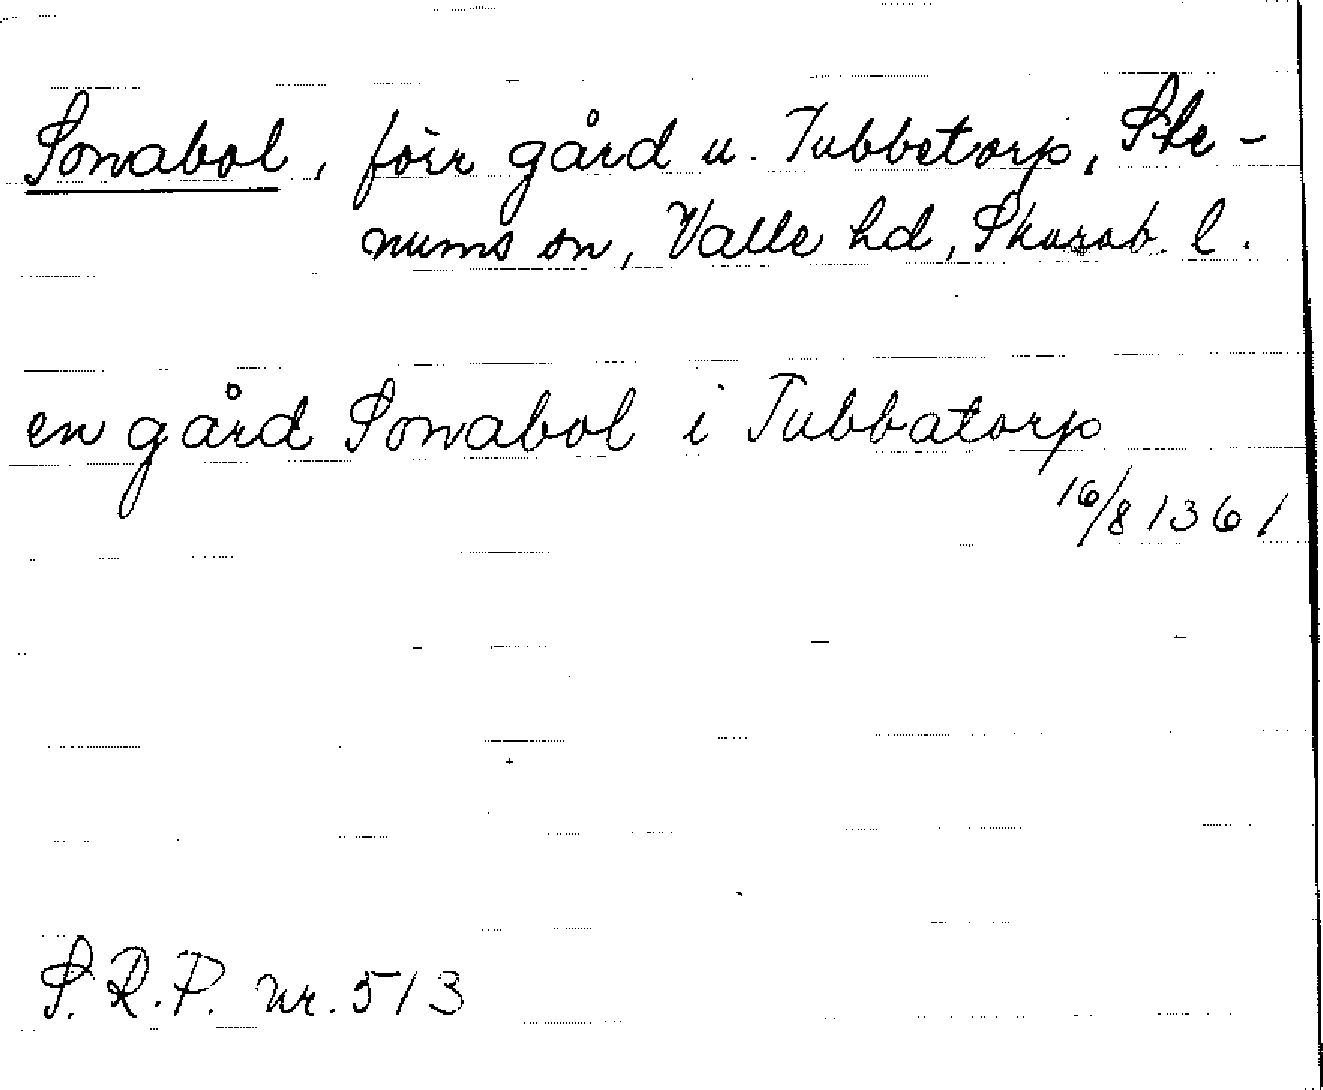 Sonabol, förr gård u. Tubbetorp, Ske-
nums sn, Valle hd, Skarab. l.
en gård Sonabol i Tubbatorp
16/8 1361
S.R.P. nr. 513